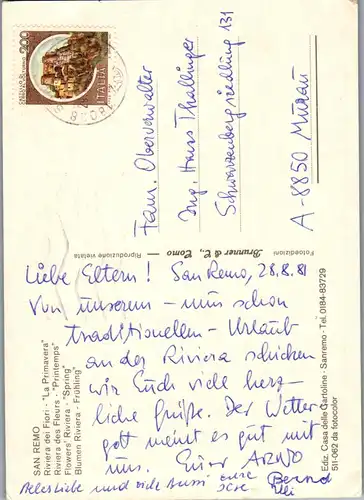 200
ITALIA
Fam. Oberverwalter
Ing. Hans Thallinger
Schwarzenbergsiedlung 131
A-8850 Murau
Fotoedizioni Brunner & C., Como Riproduzione vietata
Liebe Eltern! San Remo, 28.8.81
Von unserem - nun schon
traditionellen - Urlaub
an der Riviera schicken
wir Euch viele herz-
liche Grüße. Der Wetter-
gott meint es gut mit
uns. Euer ARNO
Alles Liebe und viele Bussi eure Bernd
SAN REMO
Riviera dei Fiori - "La Primavera"
Riviera des Fleurs - "Printemps"
Flowers' Riviera - "Spring"
Blumen Riviera - "Frühling"
Ediz. Casa delle Cartoline - Sanremo - Tel. 0184-83729
SI1-062 da fotocolor